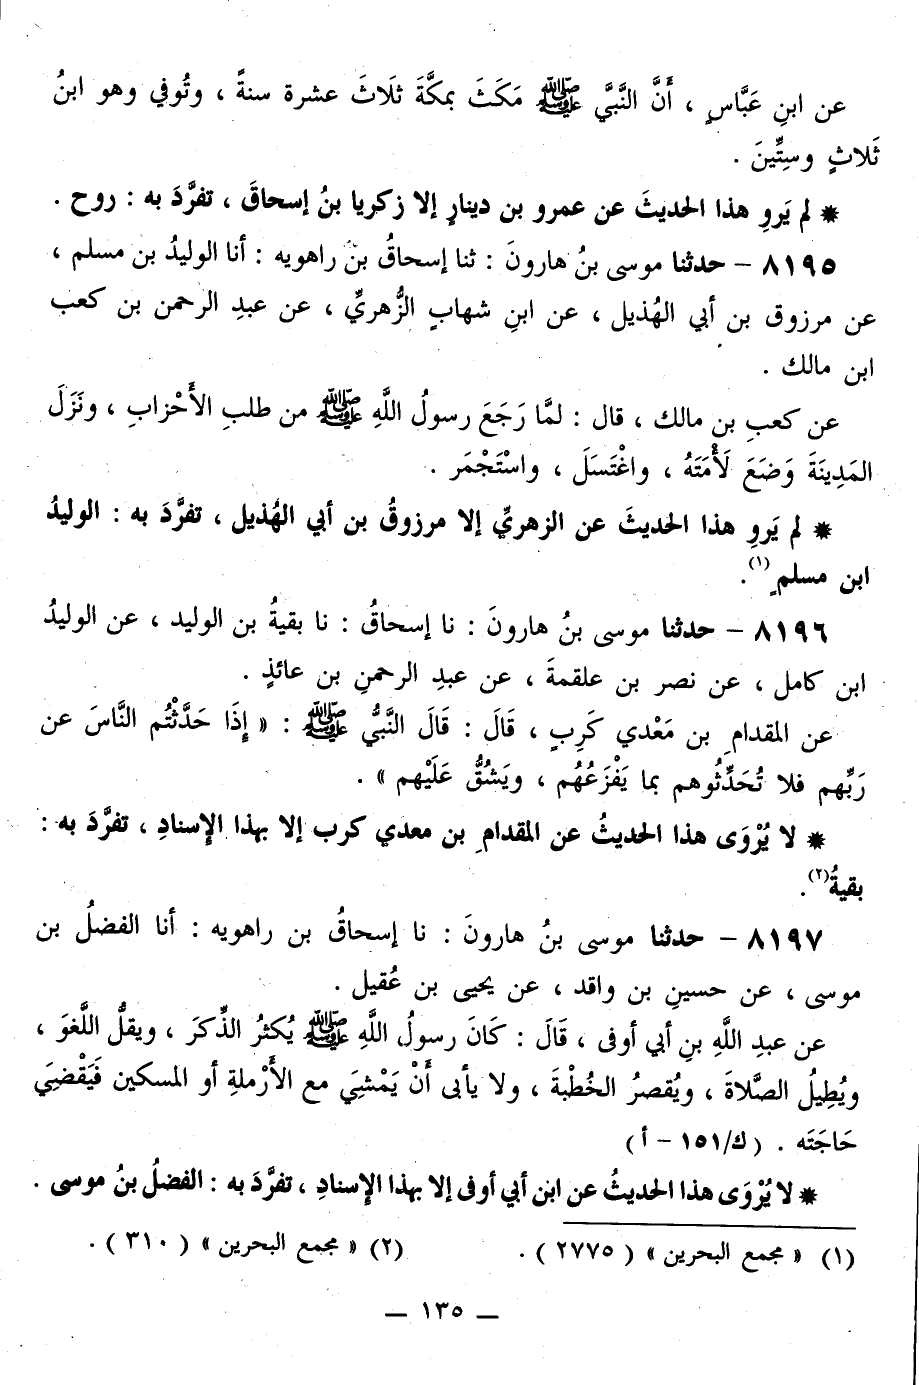 عن ابنِ عَبَّاسٍ ، أَنَّ النَّبيَّ ﷺ مَكَثَ بمكَّةَ ثلَاثَ عشرة سنةً ، وتُوفي وهو ابنُ
ثَلاثٍ وسِتِّينَ .
* لم يَروِ هذا الحديثَ عن عمرو بن دينارٍ إلا زكريا بنُ إسحاقَ ، تفرَّدَ به : روح .
٨١٩٥ – حدثنا موسى بنُ هارونَ : ثنا إسحاقُ بنُ راهويه : أنا الوليدُ بن مسلم ،
عن مرزوق بن أبي الهُذيل ، عن ابنِ شهابٍ الزُّهريِّ ، عن عبدِ الرحمن بن كعب
ابن مالك .
عن كعبِ بن مالك ، قال : لمَّا رَجَعَ رسولُ اللَّهِ ﷺ من طلبِ الأَحْزابِ ، ونَزَلَ
المَدِينَةَ وَضَعَ لَأْمَتَهُ ، واغْتَسَلَ ، واسْتَجْمَر .
* لم يَروِ هذا الحديثَ عن الزهريِّ إلا مرزوقُ بن أبي الهُذيل ، تفرَّدَ به : الوليدُ
ابن مسلمٍ(١).
٨١٩٦ – حدثنا موسى بنُ هارونَ : نا إسحاقُ : نا بقيةُ بن الوليد ، عن الوليدُ
ابن كامل ، عن نصر بن علقمةَ ، عن عبدِ الرحمنِ بن عائذٍ .
عن المقدامِ بن مَعْدي كَرِبٍ ، قَالَ : قَالَ النَّبيُّ ﷺ : « إِذَا حَدَّثْتُم النَّاسَ عن
رَبِّهم فلا تُحَدِّثُوهم بما يَفْزَعُهُم ، ويَشُقُّ عَلَيْهم » .
* لا يُرْوَى هذا الحديثُ عن المقدامِ بن معدي كرب إلا بهذا الإسنادِ ، تفرَّدَ به :
بقيةُ(٢).
٨١٩٧ – حدثنا موسى بنُ هارونَ : نا إسحاقُ بن راهويه : أنا الفضلُ بن
موسى ، عن حسينِ بن واقد ، عن يحيى بن عُقيل .
عن عبدِ اللَّهِ بنِ أبي أوفى ، قَالَ : كَانَ رسولُ اللَّهِ ﷺ يُكثرُ الذِّكرَ ، ويقلُّ اللَّغوَ ،
ويُطِيلُ الصَّلاةَ ، ويُقصرُ الخُطْبةَ ، ولا يأبى أَنْ يَمْشِيَ مع الأَرْملةِ أو المسكين فَيَقْضِيَ
حَاجَتَه . (ك/١٥١ – أ)
* لا يُرْوَى هذا الحديثُ عن ابن أبي أوفى إلا بهذا الإسنادِ ، تفرَّدَ به : الفضلُ بنُ موسى .
(١) « مجمع البحرين » ( ٢٧٧٥ ) .    (٢) « مجمع البحرين » ( ٣١٠ ) .
— ١٣٥ —